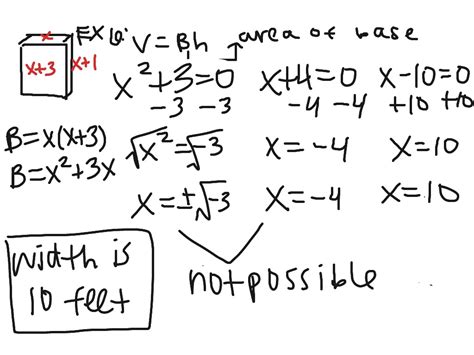 x EX 6: V = Bh → area of base
x+3 x+1 x²+3=0 x+4=0 x-10=0
-3 -3 -4 -4 +10 +10
B=x(x+3) √x²=√-3 x=-4 x=10
B=x²+3x
x=±√-3 x=-4 x=10
width is
10 feet
not possible